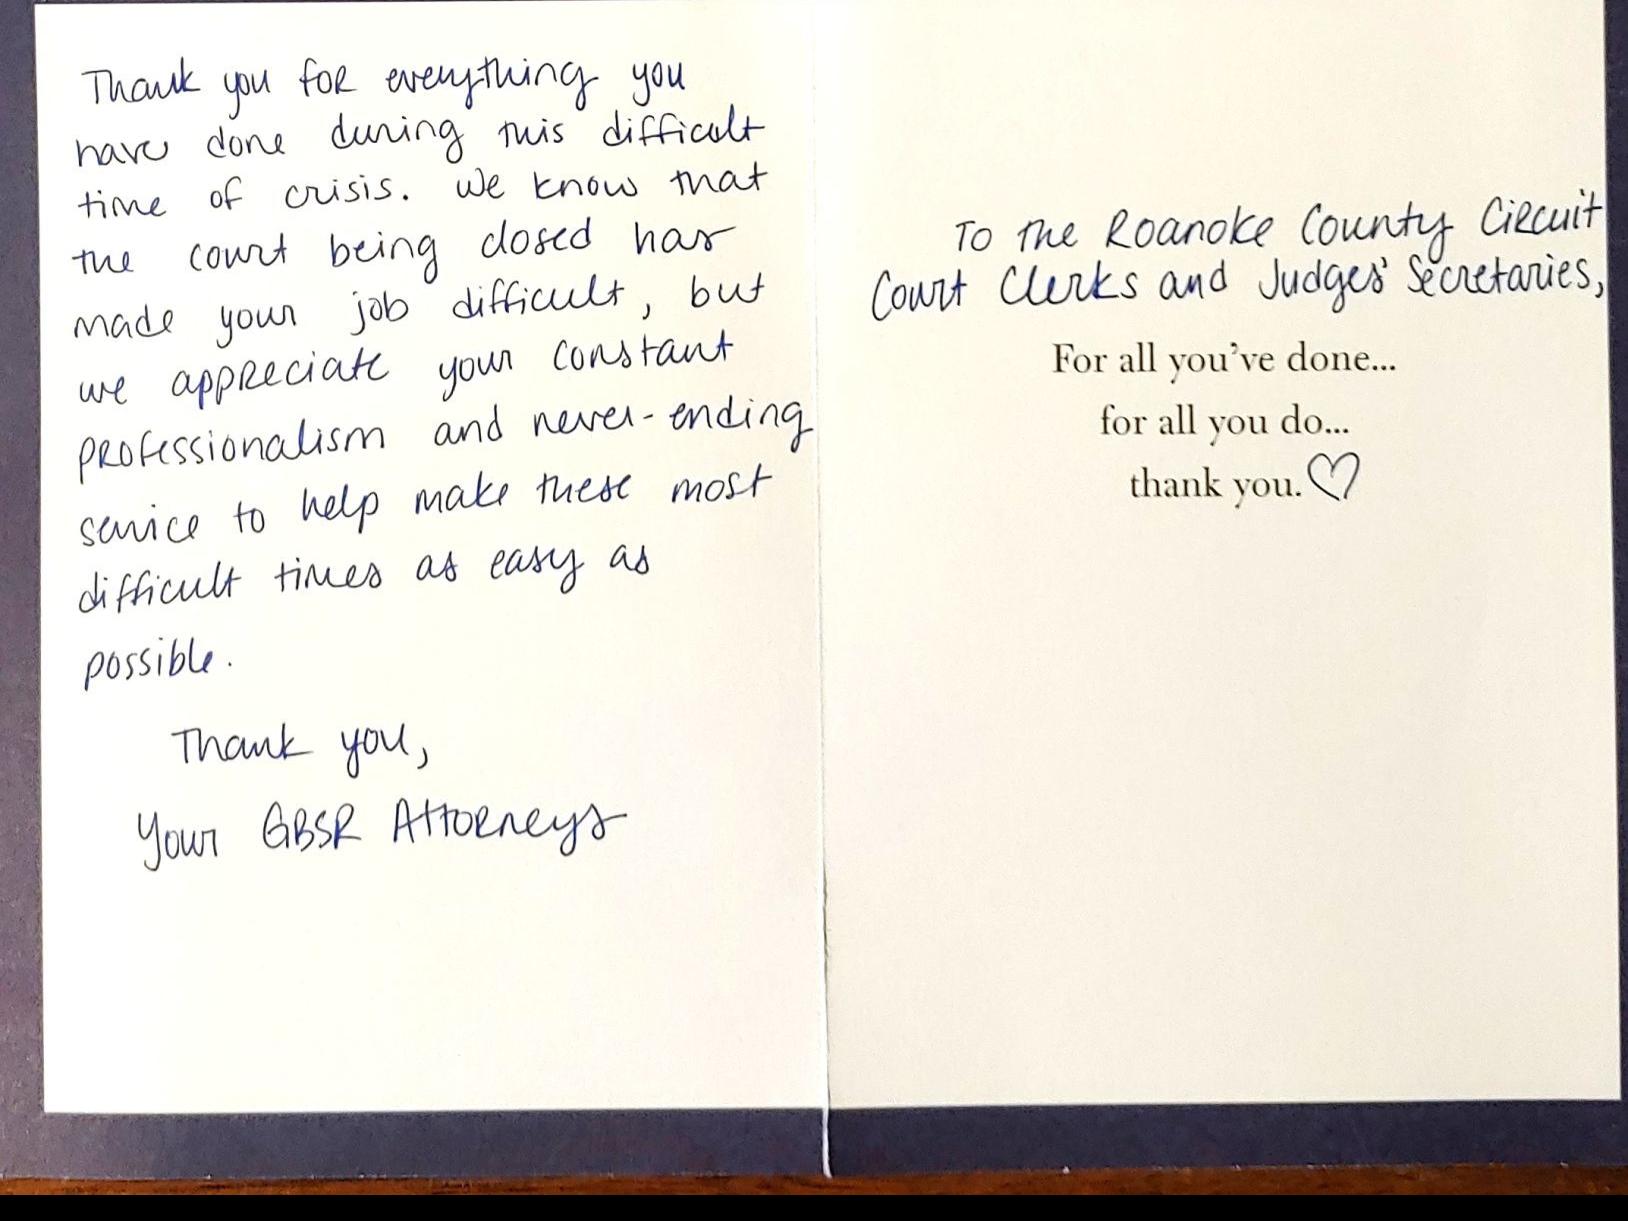 Thank you for everything you
have done during this difficult
time of crisis. We know that
the court being closed has
made your job difficult, but
we appreciate your constant
professionalism and never-ending
service to help make these most
difficult times as easy as
possible.
Thank you,
Your GBSR Attorneys
To the Roanoke County Circuit
Court Clerks and Judges' Secretaries,
For all you've done...
for all you do...
thank you.